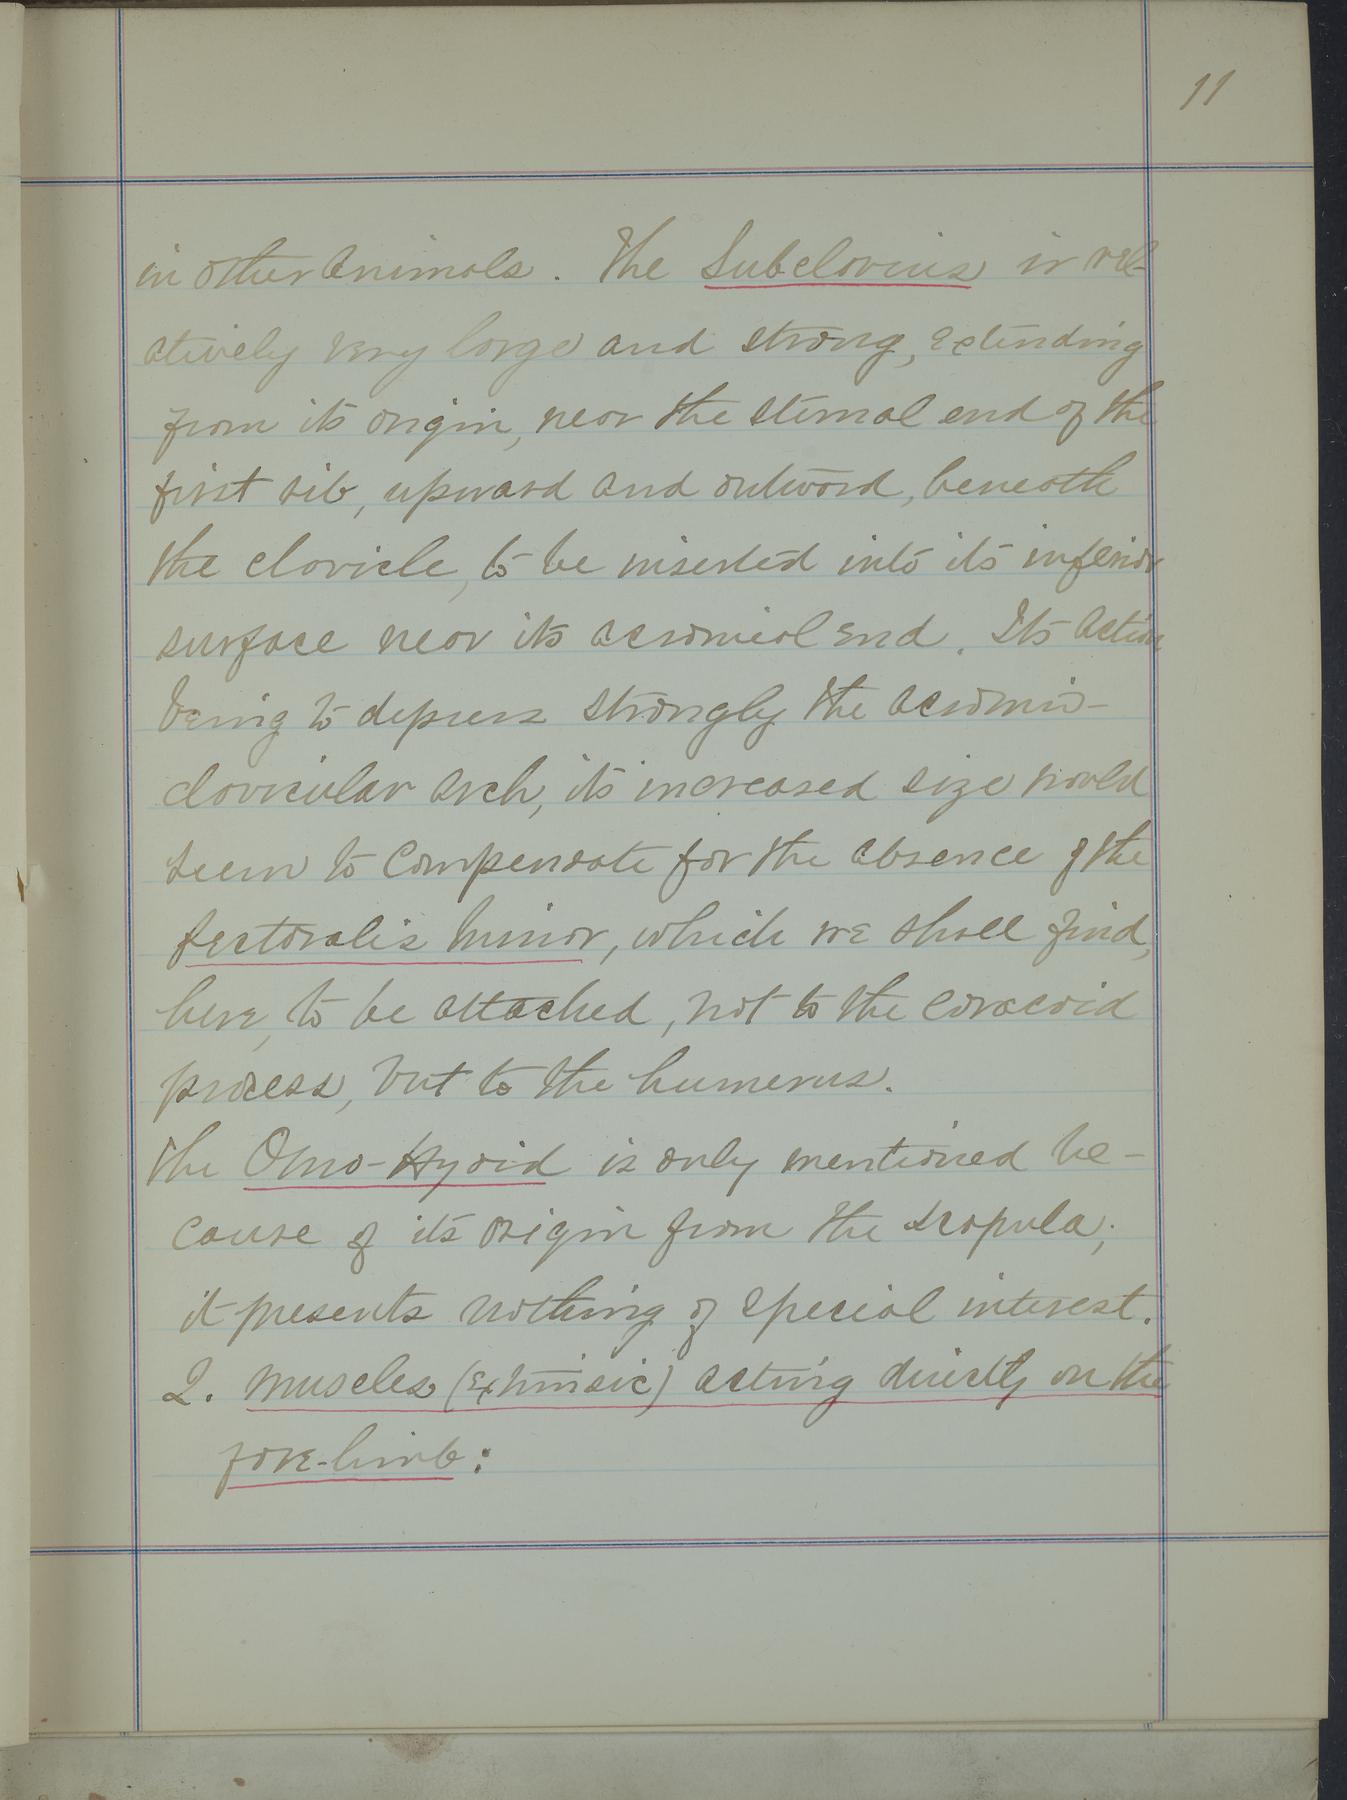 11
in other animals. The Subclavius is rel-
atively very large and strong, extending
from its origin, near the sternal end of the
first rib, upward and outward, beneath
the clavicle, to be inserted into its inferior
surface near its acromial end. Its action
being to depress strongly the acromio-
clavicular arch, its increased size would
seem to compensate for the absence of the
pectoralis minor, which we shall find,
here, to be attached, not to the coracoid
process, but to the humerus.
The Omo-Hyoid is only mentioned be-
cause of its origin from the scapula;
it presents nothing of special interest.
2. Muscles (Extrinsic) acting directly on the
fore-limb: